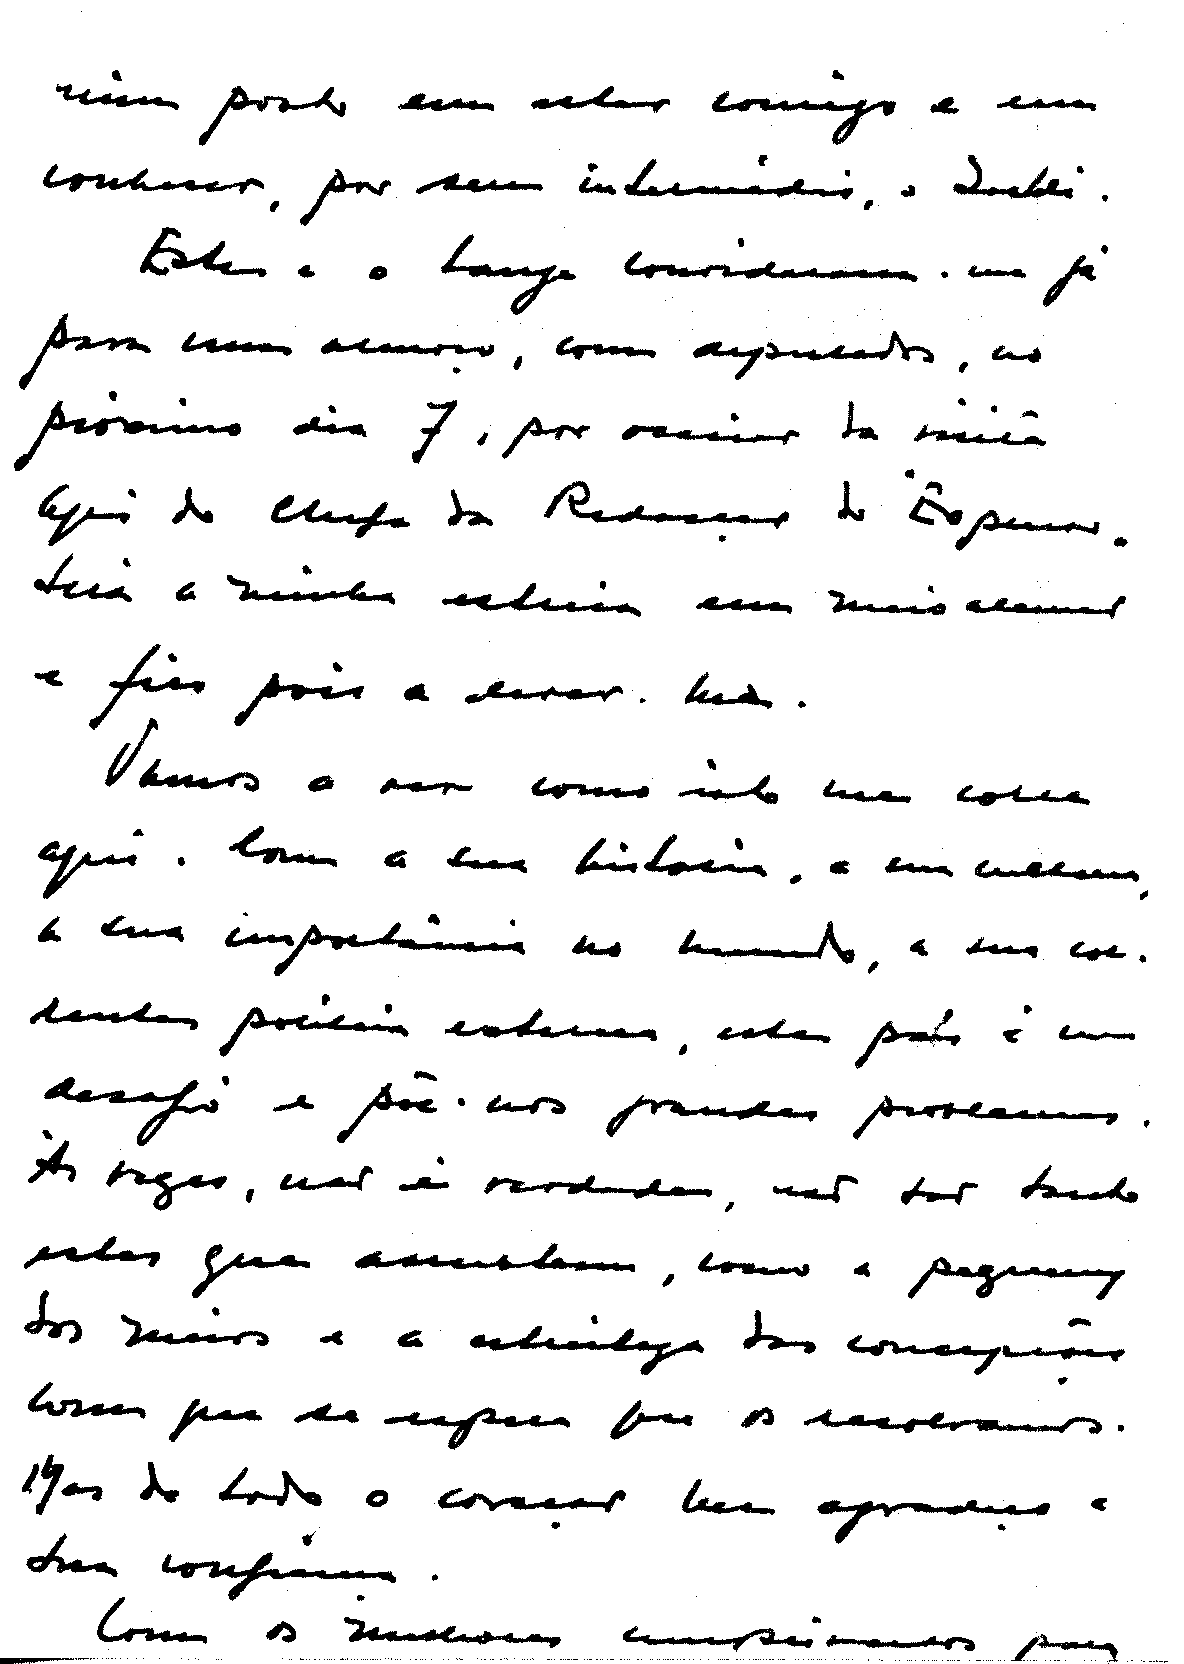 nimo posto em estar comigo e em
conhecer, por seu intermédio, o
Este e o Lange convidaram-me já
para um almoço, com deputados, no
próximo dia 7, por ocasião da visita
aqui do Chefe da Redacção do Expresso.
Será a minha estreia em meio alemão
e fico pois a dever-lha.
Vamos a ver como isto me corre
aqui. Com a sua história, a sua cultura,
a sua importância no mundo, a sua
política externa, este país é um
desafio e põe-nos grandes problemas.
Às vezes, não é verdade, não são tanto
estes que assustam, como a pequenez
dos meios e a estreiteza das concepções
com que se espera que os resolvamos.
Mas de todo o coração lhe agradeço a
sua confiança.
Com os melhores cumprimentos para